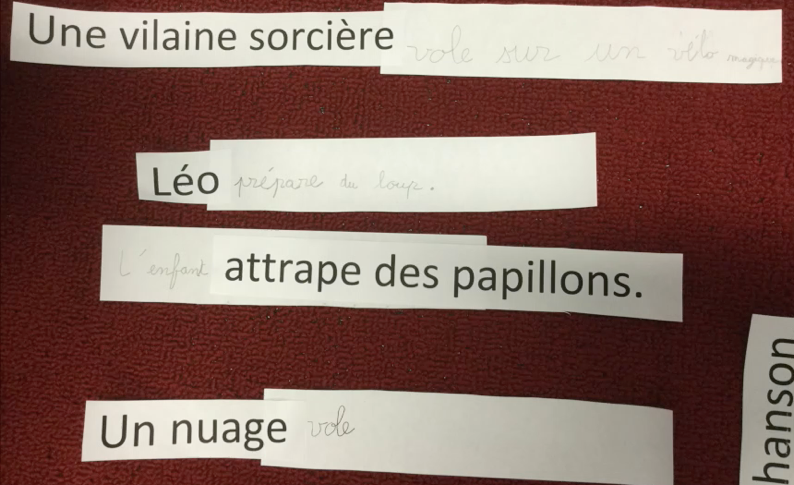 Une vilaine sorcière vole sur un vélo magique
Léo prépare du loup.
L'enfant attrape des papillons.
Un nuage vole
hanson